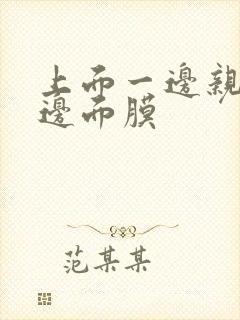 上而一邊親
邊而膜
范某某